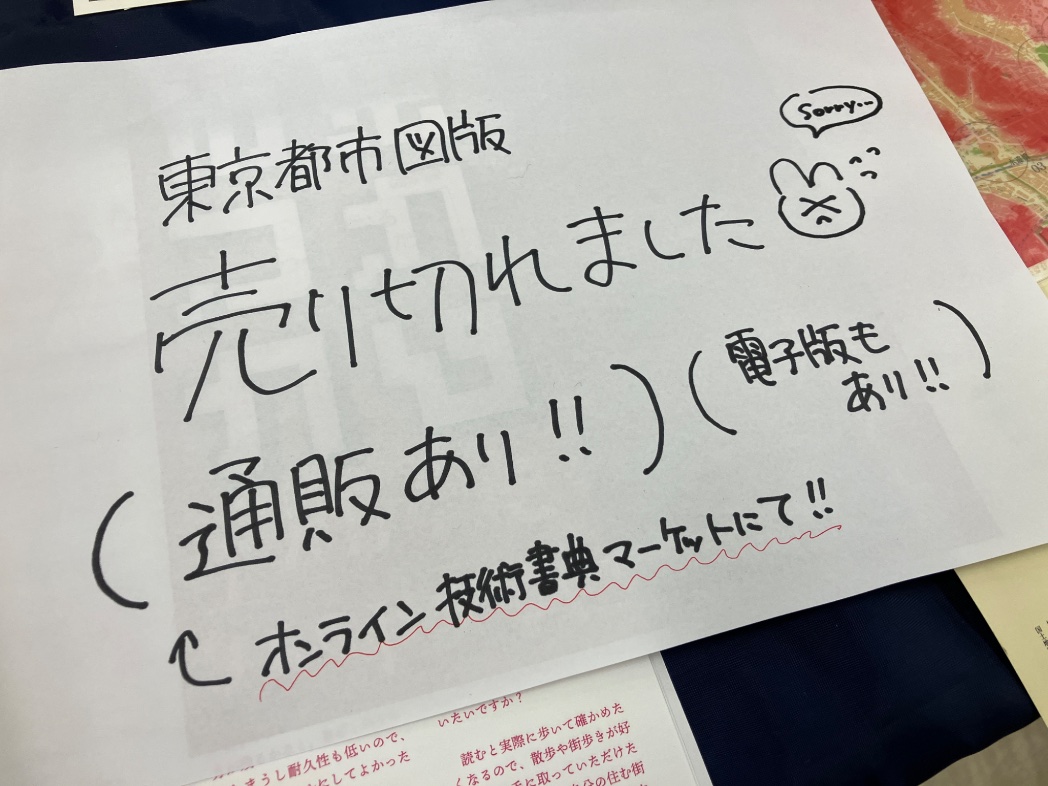 Sorry...
東京都市図版
売り切れました
(通販あり!!)
(電子版も
あり!!)
オンライン技術書典マーケットにて!!
いたいですか?
まうし耐久性も低いので、
にしてよかった
読むと実際に歩いて確かめた
くなるので、散歩や街歩きが好
に取っていただけた
の住む街